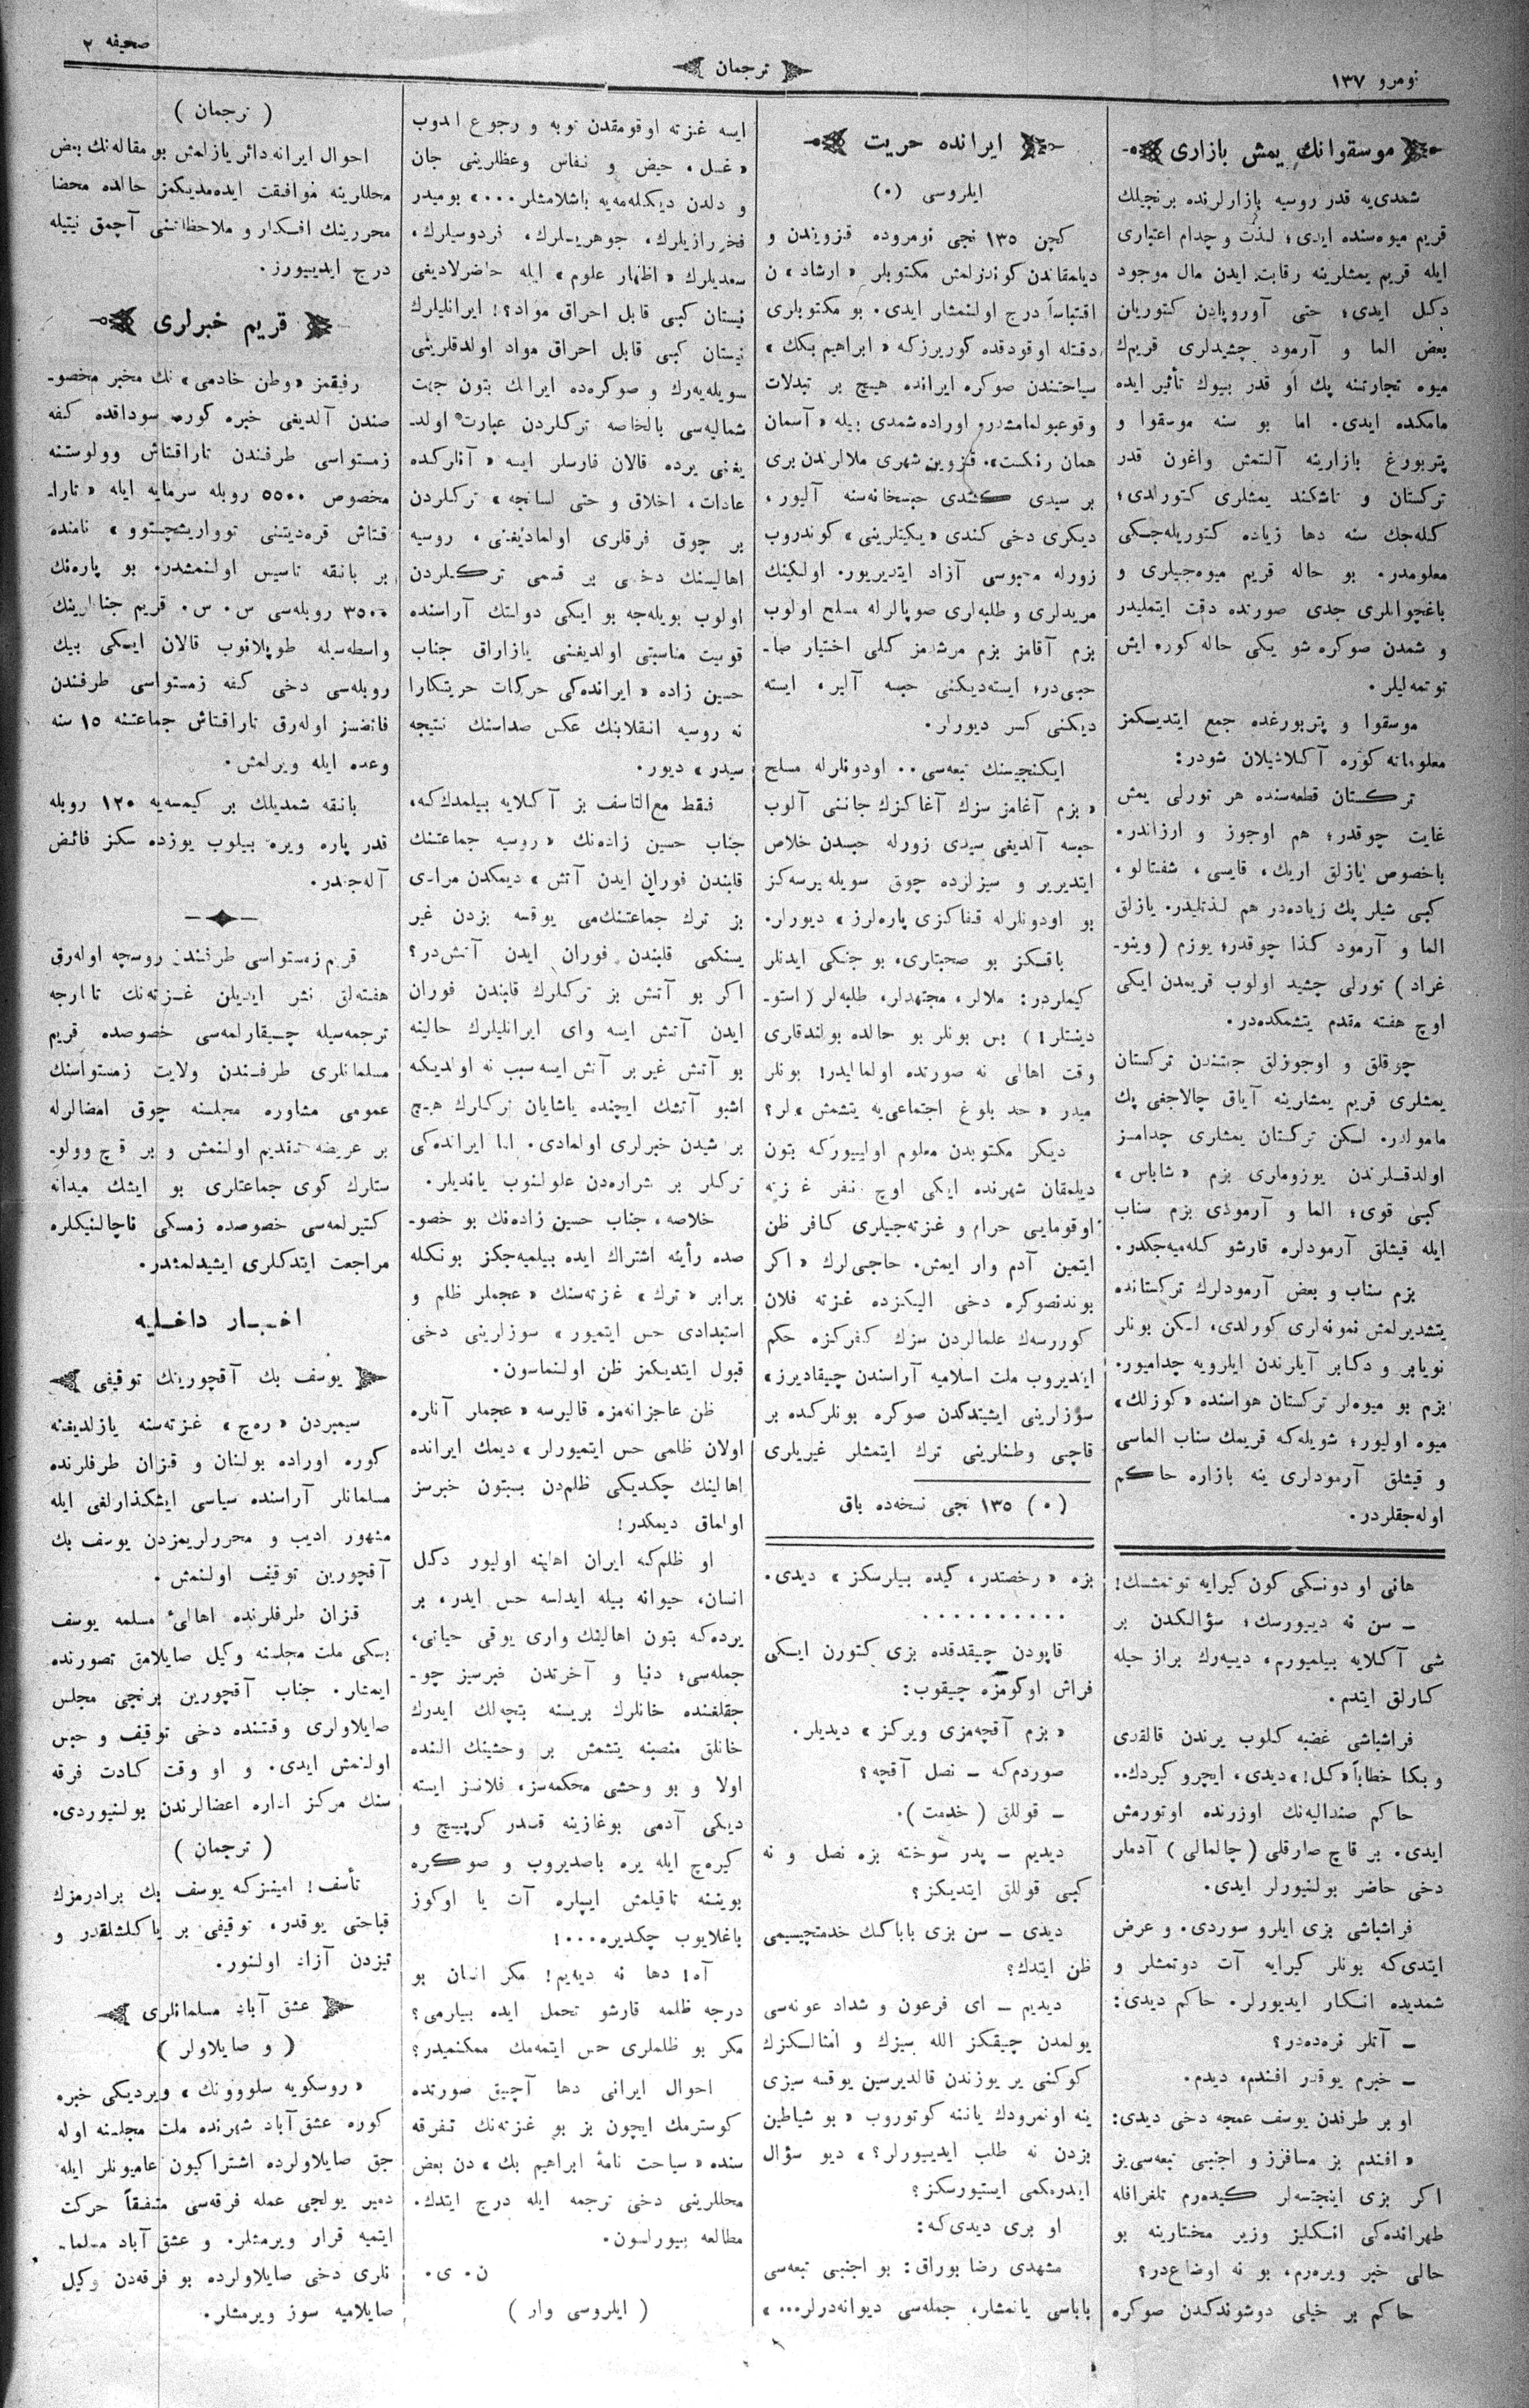 نومرو ١٣٧
ترجمان
صحیفه ٢
موسقوانك يمش بازاری
شمدی‌یه قدر روسیه بازارلرنده برنجیلك
قریم میوه‌سنده ایدی؛ لذت و چدام اعتباری
ایله قریم یمشلرینه رقابت ایدن مال موجود
دكل ایدی؛ حتی آوروپادن كتوریلن
بعض الما و آرمود چشیدلری قریمك
میوه تجارتنه پك او قدر بیوك تأثیر ایده
مامكده ایدی. اما بو سنه موسقوا و
پتربورغ بازارینه آلتمش واغون قدر
تركستان و تاشكند یمشلری كتورلدی؛
كله‌جك سنه دها زیاده كتوریله‌جكی
معلومدر. بو حاله قریم میوه‌جیلری و
باغچوانلری جدی صورتده دقت ایتملیدر
و شمدن صوكره شو یكی حاله كوره ایش
توتمه‌لیلر.
موسقوا و پتربورغده جمع ایتدیكمز
معلوماته كوره آكلاشیلان شودر:
تركستان قطعه‌سنده هر تورلی یمش
غایت چوقدر؛ هم اوجوز و ارزاندر.
باخصوص یازلق اریك، قایسی، شفتالو،
كبی شیلر پك زیاده‌در هم لذتلیدر. یازلق
الما و آرمود كذا چوقدر؛ یوزم (وینو-
غراد) تورلی چشید اولوب قریمدن ایكی
اوچ هفته مقدم یتشمكده‌در.
چوقلق و اوجوزلق جهتندن تركستان
یمشلری قریم یمشلرینه آیاق چالاجغی پك
مامولدر. لكن تركستان یمشلری چدامسز
اولدقلرندن یوزوملری بزم «شاباس»
كبی قوی؛ الما و آرمودی بزم سناب
ایله قیشلق آرمودلره قارشو كله‌میه‌جكدر.
بزم سناب و بعض آرمودلرك تركستانده
یتشدیرلمش نمونه‌لری كورلدی، لیكن بونلر
نویابر و دكابر آیلرندن ایلرویه چدامیور.
بزم بو میوه‌لر تركستان هواسنده «كوزلك»
میوه اولیور؛ شویله‌كه قریمك سناب الماسی
و قیشلق آرمودلری ینه بازاره حاكم
اوله‌جقلردر.
هانی او دونكی كون كیرایه توتمشسك!
ـ سن نه دییورسك؛ سؤالكدن بر
شی آكلایه بیلمیورم، دییه‌رك براز حیله
كارلق ایتدم.
فراشباشی غضبه كلوب یرندن قالقدی
و بكا خطاباً «كل!» دیدی، ایچرو كیردك..
حاكم صندالیه‌نك اوزرنده اوتورمش
ایدی. بر قاچ صارقلی (چالمالی) آدملر
دخی حاضر بولنیورلر ایدی.
فراشباشی بزی ایلرو سوردی. و عرض
ایتدی‌كه بونلر كیرایه آت دوتمشلر و
شمدیده انكار ایدیورلر. حاكم دیدی:
ـ آتلر نره‌ده‌در؟
ـ خبرم یوقدر افندم، دیدم.
او بر طرفدن یوسف عمجه دخی دیدی:
«افندم بز مسافرز و اجنبی تبعه‌سی‌یز
اكر بزی اینجتسه‌لر كیده‌رم تلغرافله
طهرانده‌كی انكلیز وزیر مختارینه بو
حالی خبر ویره‌رم، بو نه اوضاع‌در؟
حاكم بر خیلی دوشوندكدن صوكره
ایرانده حریت
ایلروسی (٠)
كچن ١٣٥ نجی نومروده قزویندن و
دیلمقاندن كوندرلمش مكتوبلر «ارشاد» ن
اقتباساً درج اولنمشلر ایدی. بو مكتوبلری
دقتله اوقودقده كوریرزكه «ابراهیم بكك»
سیاحتندن صوكره ایرانده هیچ بر تبدلات
وقوعبولمامشدر و اوراده شمدی بیله «آسمان
همان رنكست». قزوین شهری ملالرندن بری
بر سیدی كشدی حبسخانه‌سنه آلیور،
دیكری دخی كندی «یكیتلرینی» كوندروب
زورله محبوسی آزاد ایتدیریور. اولكینك
مریدلری و طلبه‌لری صوپالرله مسلح اولوب
بزم آقامز بزم مرشدمز كلی اختیار صا-
حبی‌در؛ ایسته‌دیكنی حبسه آلیر، ایسته
دیكنی كسر دیورلر.
ایكنجیسنك تبعه‌سی.. اودونلرله مسلح
«بزم آغامز سزك آغاكزك جاننی آلوب
حبسه آلدیغی سیدی زورله حبسدن خلاص
ایتدیریر و سیزلرده چوق سویله‌یرسه‌كز
بو اودونلرله قفاكزی پاره‌لرز» دیورلر.
باقكز بو صحبتلری، بو جنكی ایدنلر
كیملردر: ملالر، مجتهدلر، طلبه‌لر (استو-
دینتلر!) بس بونلر بو حالده بولندقلری
وقت اهالی نه صورتده اولمالیدر! بونلر
میدر «حد بلوغ اجتماعی‌یه یتشمش»لر؟
دیكر مكتوبدن معلوم اولییوركه بتون
دیلمقان شهرنده ایكی اوچ نفر غزته
اوقومایی حرام و غزته‌جیلری كافر ظن
ایتمین آدم وار ایمش. حاجی‌لرك «اكر
بوندنصوكره دخی الیكزده غزته فلان
كوررسه‌ك علمالردن سزك كفركزه حكم
ایتدیروب ملت اسلامیه آراسندن چیقادیرز»
سؤزلرینی ایشیتدكدن صوكره بونلركده بر
قاچی وطنلرینی ترك ایتمشلر غیریلری
(٠) ١٣٥ نجی نسخه‌ده باق
بزه «رخصتدر، كیده بیلرسكز» دیدی.
. . . . . . . . . .
قاپودن چیقدقده بزی كتورن ایكی
فراش اوكومزه چیقوب:
«بزم آقچه‌مزی ویركز» دیدیلر.
صوردم‌كه ـ نصل آقچه؟
ـ قوللق (خدمت).
دیدیم ـ پدر سوخته بزه نصل و نه
كبی قوللق ایتدیكز؟
دیدی ـ سن بزی باباكك خدمتچیسیمی
ظن ایتدك؟
دیدیم ـ ای فرعون و شداد عونه‌سی
یولمدن چیقكز الله سیزك و امثالكزك
كوكنی یر یوزندن قالدیرسین یوقسه سیزی
ینه او نمرودك یاننه كوتوروب «بو شیاطین
بزدن نه طلب ایدییورلر؟» دیو سؤال
ایدره‌كمی ایستیورسكز؟
او بری دیدی‌كه:
مشهدی رضا بوراق: بو اجنبی تبعه‌سی
باباسی یانمشلر، جمله‌سی دیوانه‌درلر...»
ایسه غزته اوقومقدن توبه و رجوع ایدوب
«غسل، حیض و نفاس وعظلرینی جان
و دلدن دیكله‌مه‌یه باشلامشلر...» بومیدر
فخررازیلرك، جوهریلرك، فردوسیلرك،
سعدیلرك «اظهار علوم» ایله حاضرلادیغی
نیستان كبی قابل احراق مواد؟! ایرانلیلرك
نیستان كبی قابل احراق مواد اولدقلرینی
سویله‌یه‌رك و صوكره‌ده ایرانك بتون جهت
شمالیه‌سی بالخاصه تركلردن عبارت اولد-
یغنی یرده قالان فارسلر ایسه «آنلركده
عادات، اخلاق و حتی لسانجه» تركلردن
بر چوق فرقلری اولمادیغنی، روسیه
اهالیسنك دخی بر قسمی تركلردن
اولوب بویله‌جه بو ایكی دولتك آراسنده
قومیت مناسبتی اولدیغنی یازاراق جناب
حسین زاده «ایرانده‌كی حركات حریتكارا
نه روسیه انقلابنك عكس صداسنك نتیجه
سیدر» دیور.
فقط مع‌التاسف بز آكلایه بیلمدك‌كه،
جناب حسین زاده‌نك «روسیه جماعتنك
قلبندن فوران ایدن آتش» دیمكدن مرادی
بز ترك جماعتنك‌می یوقسه بزدن غیر
یسنكمی قلبندن فوران ایدن آتش‌در؟
اكر بو آتش بز تركلرك قلبندن فوران
ایدن آتش ایسه وای ایرانلیلرك حالینه
بو آتش غیر بر آتش ایسه سبب نه اولدیكه
اشبو آتشك ایچنده یاشایان تركلرك هیچ
بر شیدن خبرلری اولمادی. اما ایرانده‌كی
تركلر بر شراره‌دن علولنوب یاندیلر.
خلاصه، جناب حسین زاده‌نك بو خصو-
صده رأینه اشتراك ایده بیلمیه‌جكز بونكله
برابر «ترك» غزته‌سنك «عجملر ظلم و
استبدادی حس ایتمیور» سوزلرینی دخی
قبول ایتدیكمز ظن اولنماسون.
ظن عاجزانه‌مزه قالیرسه «عجملر آنلره
اولان ظلمی حس ایتمیورلر» دیمك ایرانده
اهالینك چكدیكی ظلم‌دن بسبتون خبرسز
اولماق دیمكدر!
او ظلم‌كه ایران اهلینه اولیور دكل
انسان، حیوانه بیله ایدلسه حس ایدر، بر
یرده‌كه بتون اهالینك واری یوقی حیاتی،
جمله‌سی؛ دنیا و آخرتدن خبرسیز چو-
جقلغنده خانلرك بریسنه بتچه‌لك ایدرك
خانلق منصبنه یتشمش بر وحشینك النده
اولا و بو وحشی محكمه‌سز، فلانسز ایسته
دیكی آدمی بوغازینه قدر كرپیچ و
كیره‌ج ایله یره باصدیروب و صوكره
بویننه تاقیلمش ایپلره آت یا اوكوز
باغلایوب چكدیره...!
آه! دها نه دیه‌یم! مكر انسان بو
درجه ظلمه قارشو تحمل ایده بیلرمی؟
مكر بو ظلملری حس ایتمه‌مك ممكنمیدر؟
احوال ایرانی دها آچیق صورتده
كوسترمك ایچون بز بو غزته‌نك تفرقه
سنده «سیاحت نامهٔ ابراهیم بك» دن بعض
محللرینی دخی ترجمه ایله درج ایتدك.
مطالعه بیورلسون.
ن. ی.
(ایلروسی وار)
(ترجمان)
احوال ایرانه دائر یازلمش بو مقاله‌نك بعض
محللرینه موافقت ایده‌مدیكمز حالده محضا
محررینك افكار و ملاحظاتنی آچمق نیتیله
درج ایدییورز.
قریم خبرلری
رفیقمز «وطن خادمی» نك مخبر مخصو-
صندن آلدیغی خبره كوره سوداقده كفه
زمستواسی طرفندن تاراقتاش وولوستنه
مخصوص ٥٥٠٠ روبله سرمایه ایله «تارا-
قتاش قره‌دیتنی توواریشچستوو» نامنده
بر بانقه تاسیس اولنمشدر. بو پاره‌نك
٣٥٠٠ روبله‌سی س. س. قریم جنابارینك
واسطه‌سیله طوپلانوب قالان ایكی بیك
روبله‌سی دخی كفه زمستواسی طرفندن
فائضسز اوله‌رق تاراقتاش جماعتنه ١٥ سنه
وعده ایله ویرلمش.
بانقه شمدیلك بر كیمسه‌یه ١٢٠ روبله
قدر پاره ویره بیلوب یوزده سكز فائض
آله‌جقدر.
قریم زمستواسی طرفندن روسچه اوله‌رق
هفته‌لق نشر ایدیلن غزته‌نك تاتارجه
ترجمه‌سیله چیقارلمه‌سی خصوصده قریم
مسلمانلری طرفندن ولایت زمستواسنك
عمومی مشاوره مجلسنه چوق امضالرله
بر عریضه تقدیم اولنمش و بر قاچ وولو-
ستلرك كوی جماعتلری بو ایشك میدانه
كتیرلمه‌سی خصوصده زمسكی ناچالنیكلره
مراجعت ایتدكلری ایشیدلمشدر.
اخبار داخلیه
یوسف بك آقچورینك توقیفی
سیمبردن «ره‌چ» غزته‌سنه یازلدیغنه
كوره اوراده بولنان و قزان طرفلرنده
مسلمانلر آراسنده سیاسی ایشكذارلغی ایله
مشهور ادیب و محررلریمزدن یوسف بك
آقچورین توقیف اولنمش.
قزان طرفلرنده اهالیٔ مسلمه یوسف
بكی ملت مجلسنه وكیل صایلامق تصورنده
ایمشلر. جناب آقچورین برنجی مجلس
صایلاولری وقتنده دخی توقیف و حبس
اولنمش ایدی. و او وقت كادت فرقه
سنك مركز اداره اعضالرندن بولنیوردی.
(ترجمان)
تأسف! امینزكه یوسف بك برادرمزك
قباحتی یوقدر، توقیفی بر یاكلشلقدر و
تیزدن آزاد اولنور.
عشق آباد مسلمانلری
(و صایلاولر)
«روسكویه سلووونك» ویردیكی خبره
كوره عشق‌آباد شهرنده ملت مجلسنه اوله
جق صایلاولرده اشتراكیون عامیونلر ایله
دمیر یولجی عمله فرقه‌سی متفقاً حركت
ایتمیه قرار ویرمشلر. و عشق آباد مسلما-
نلری دخی صایلاولرده بو فرقه‌دن وكیل
صایلامیه سوز ویرمشلر.